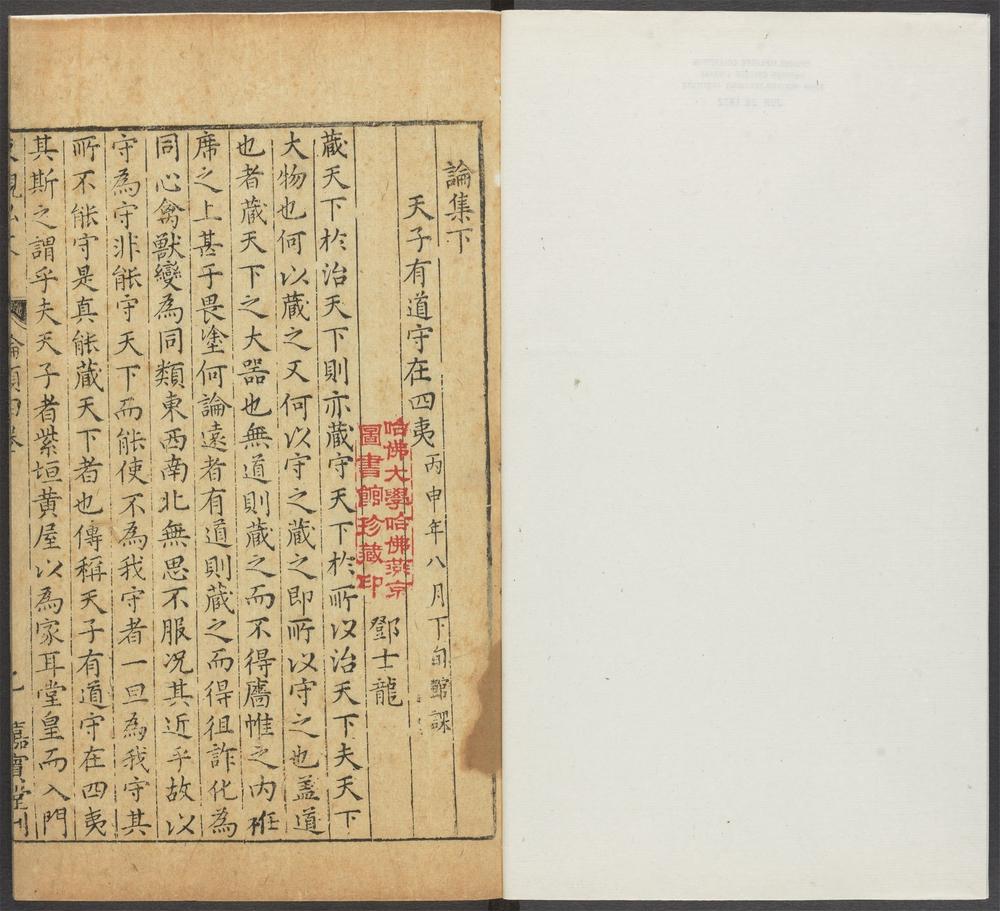 論集下
天子有道守在四夷丙申年八月下旬館課
鄧士龍
藏天下於治天下則亦藏守天下於所以治天下夫天下
大物也何以藏之又何以守之藏之即所以守之也盖道
也者藏天下之大器也無道則藏之而不得鴈帷之内袵
席之上甚于畏塗何論遠者有道則藏之而得徂詐化為
同心禽獸變為同類東西南北無思不服况其近乎故以
守為守非能守天下而能使不為我守者一旦為我守其
所不能守是真能藏天下者也傳稱天子有道守在四夷
其斯之謂乎夫天子者紫垣黄屋以為家耳堂皇而入門
論類四卷
嘉賓堂刊
哈佛大學哈佛燕京
圖書館珍藏印